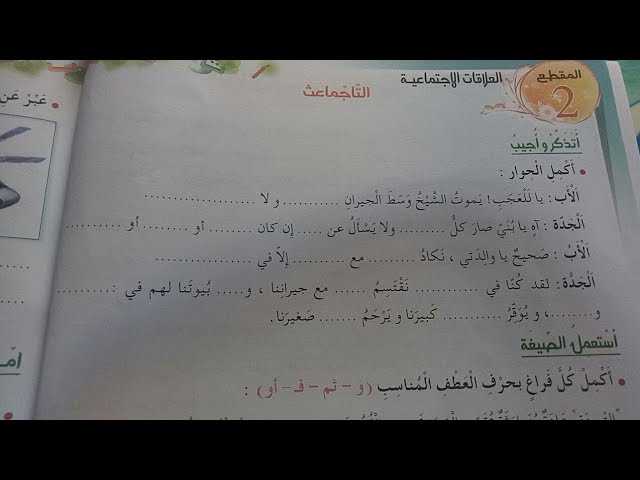 المقطع 2
العلاقات الاجتماعية
التاجماعث
أتذكّر و أجيب
• أَكْمِلِ الْحِوار :
اَلْأَب : يا لَلْعَجَبِ! يَموتُ الشَّيْخُ وَسَطَ الْجيرانِ ........... و لا ....................
اَلْجَدّة : آهٍ يا بُنَيّ صارَ كلُّ ......... ولا يَسْألُ عن ..... إن كان ......... أو ......... أو ...........
اَلْأَبُ : صَحيحٌ يا والِدَتي ، نَكادُ ........... مع ........... إلاّ في ..................
اَلْجَدَّة: لقد كُنّا في ............. نَقْتَسِمُ ...... مع جيرانِنا ، و..... بُيوتَنا لهم في : ..........
و.......، و يُوَقِّرُ ........... كَبيرَنا و يَرْحَمُ ....... صَغيرَنا.
أستعمل الصّيغة
• أَكْمِلْ كُلَّ فَراغٍ بحرْفِ الْعَطْفِ الْمُناسِبِ (و – ثم – فـ – أو) :
• عَبِّرْ عَنِ